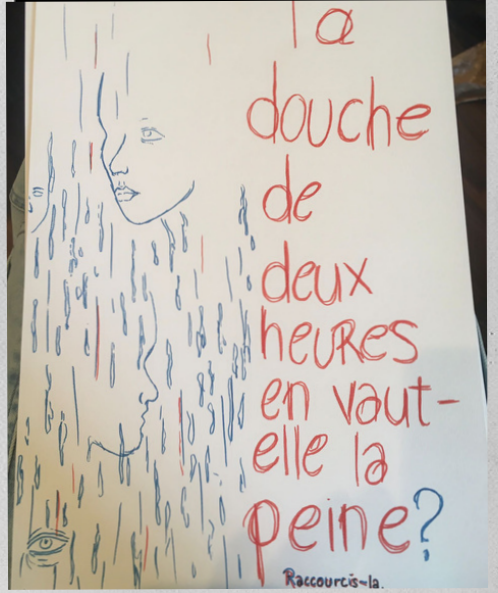 la
douche
de
deux
heures
en vaut-
elle la
peine?
Raccourcis-la.